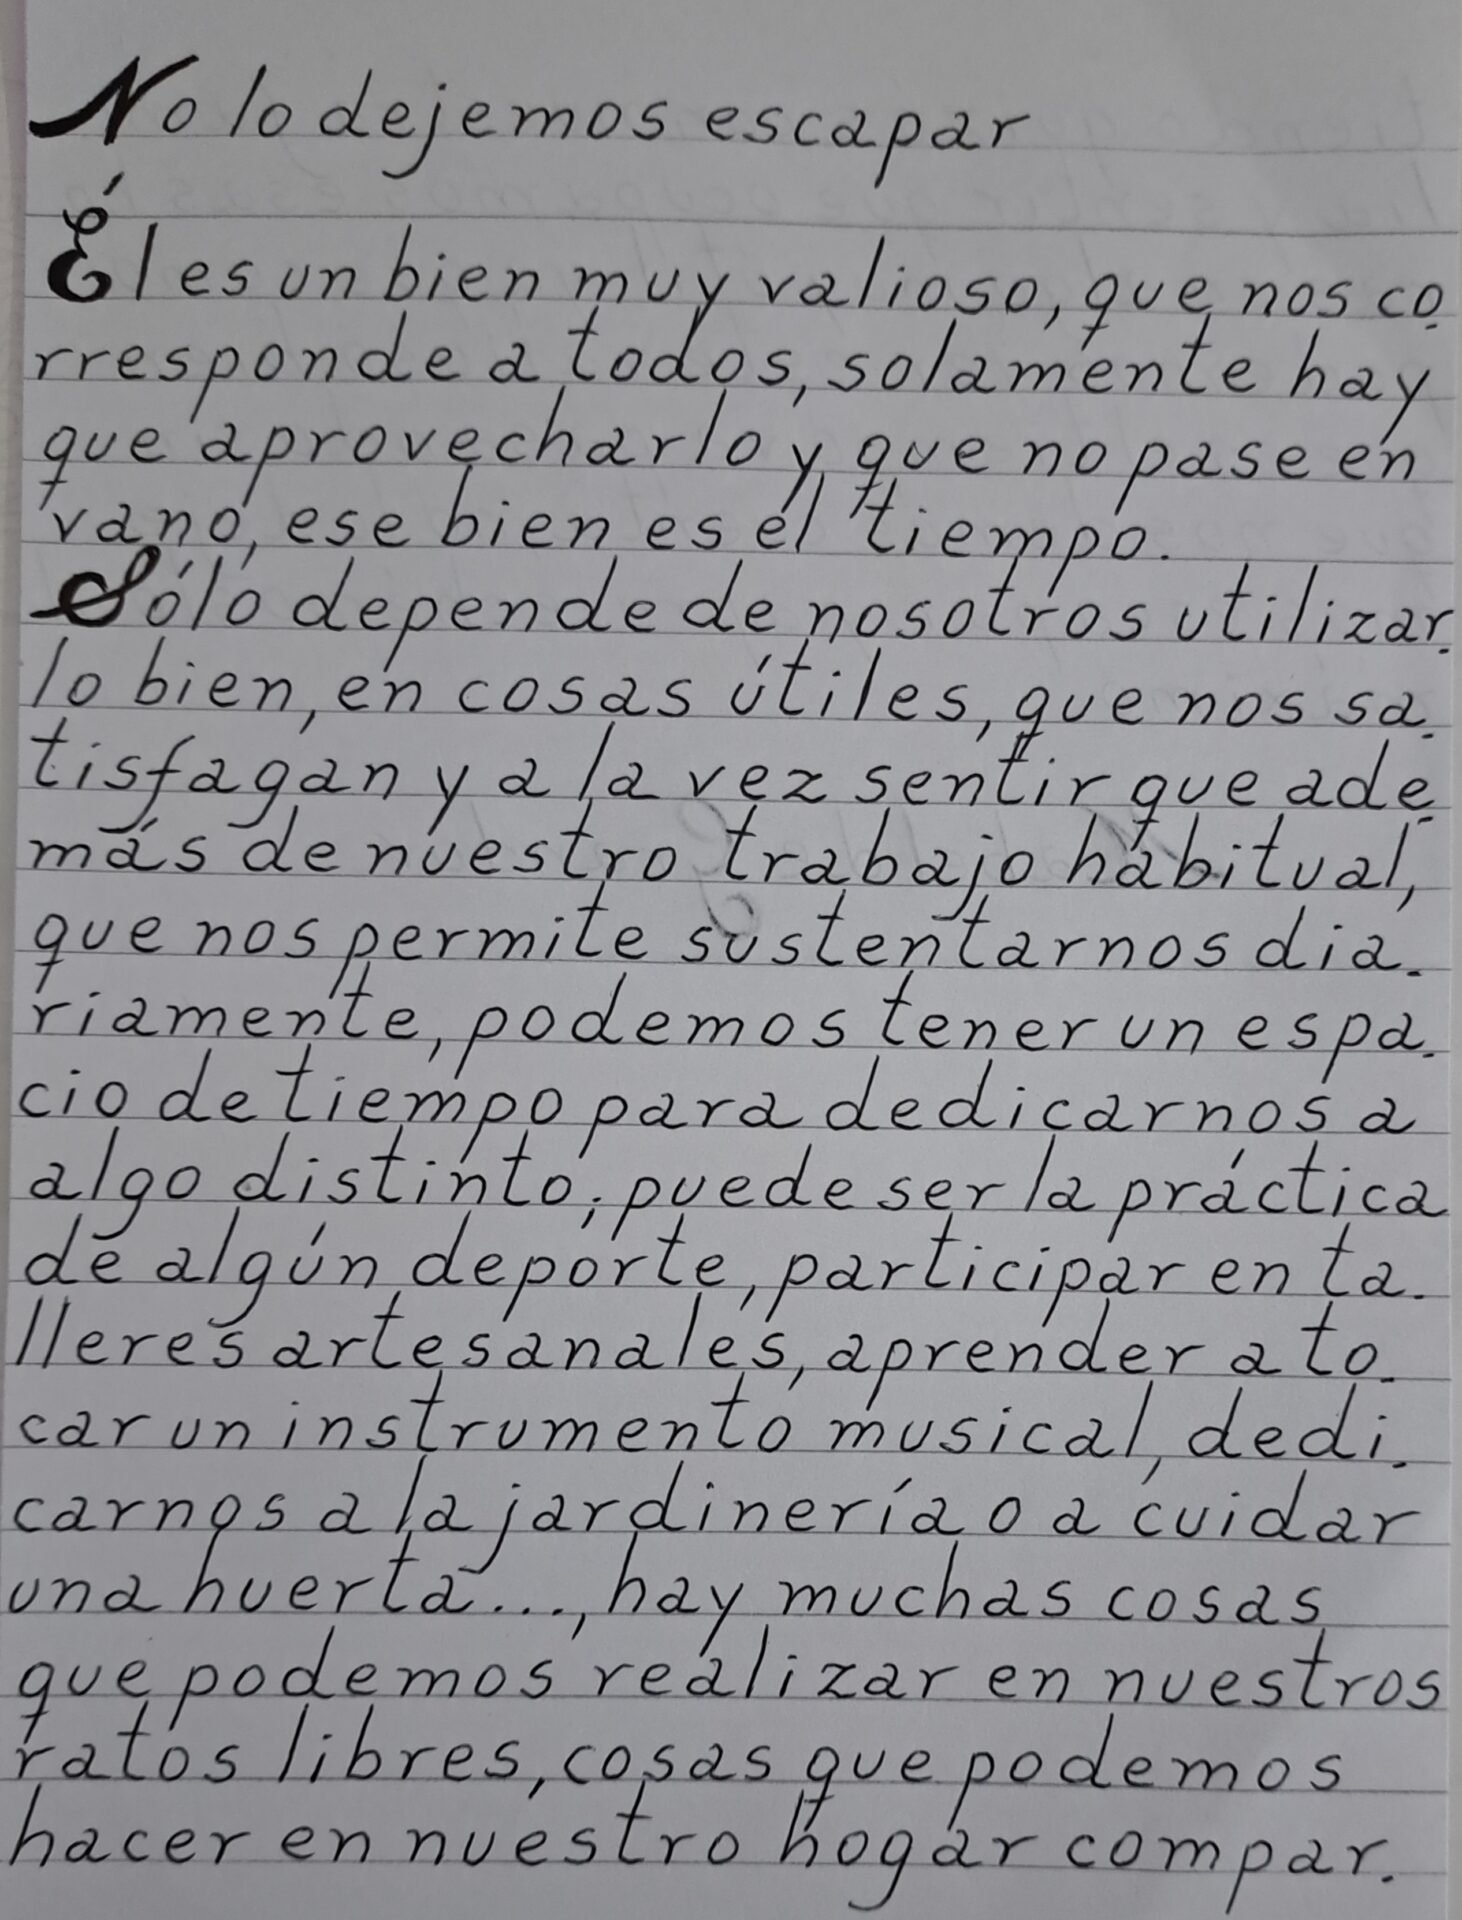 No lo dejemos escapar
Él es un bien muy valioso, que nos co.
rresponde a todos, solamente hay
que aprovecharlo y que no pase en
vano, ese bien es el tiempo.
Sólo depende de nosotros utilizar.
lo bien, en cosas útiles, que nos sa.
tisfagan y a la vez sentir que ade.
más de nuestro trabajo habitual,
que nos permite sustentarnos dia.
riamente, podemos tener un espa.
cio de tiempo para dedicarnos a
algo distinto; puede ser la práctica
de algún deporte, participar en ta.
lleres artesanales, aprender a to.
car un instrumento musical, dedi.
carnos a la jardinería o a cuidar
una huerta..., hay muchas cosas
que podemos realizar en nuestros
ratos libres, cosas que podemos
hacer en nuestro hogar compar.